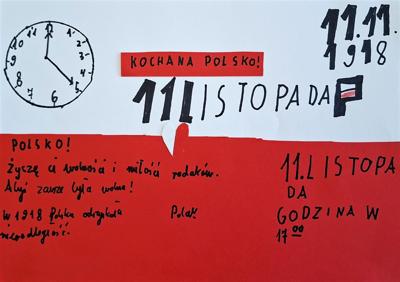 12
11
1
10
2
9
3
8
4
7
6
5
11.11.
1918
KOCHANA POLSKO!
11 LISTOPADA
POLSKO!
Życzę ci wolności i miłość rodaków.
Abyś zawsze była wolna!
W 1918 Polska odzyskała
niepodległość.
Polak
11. LISTOPA
DA
GODZINA W
17 00